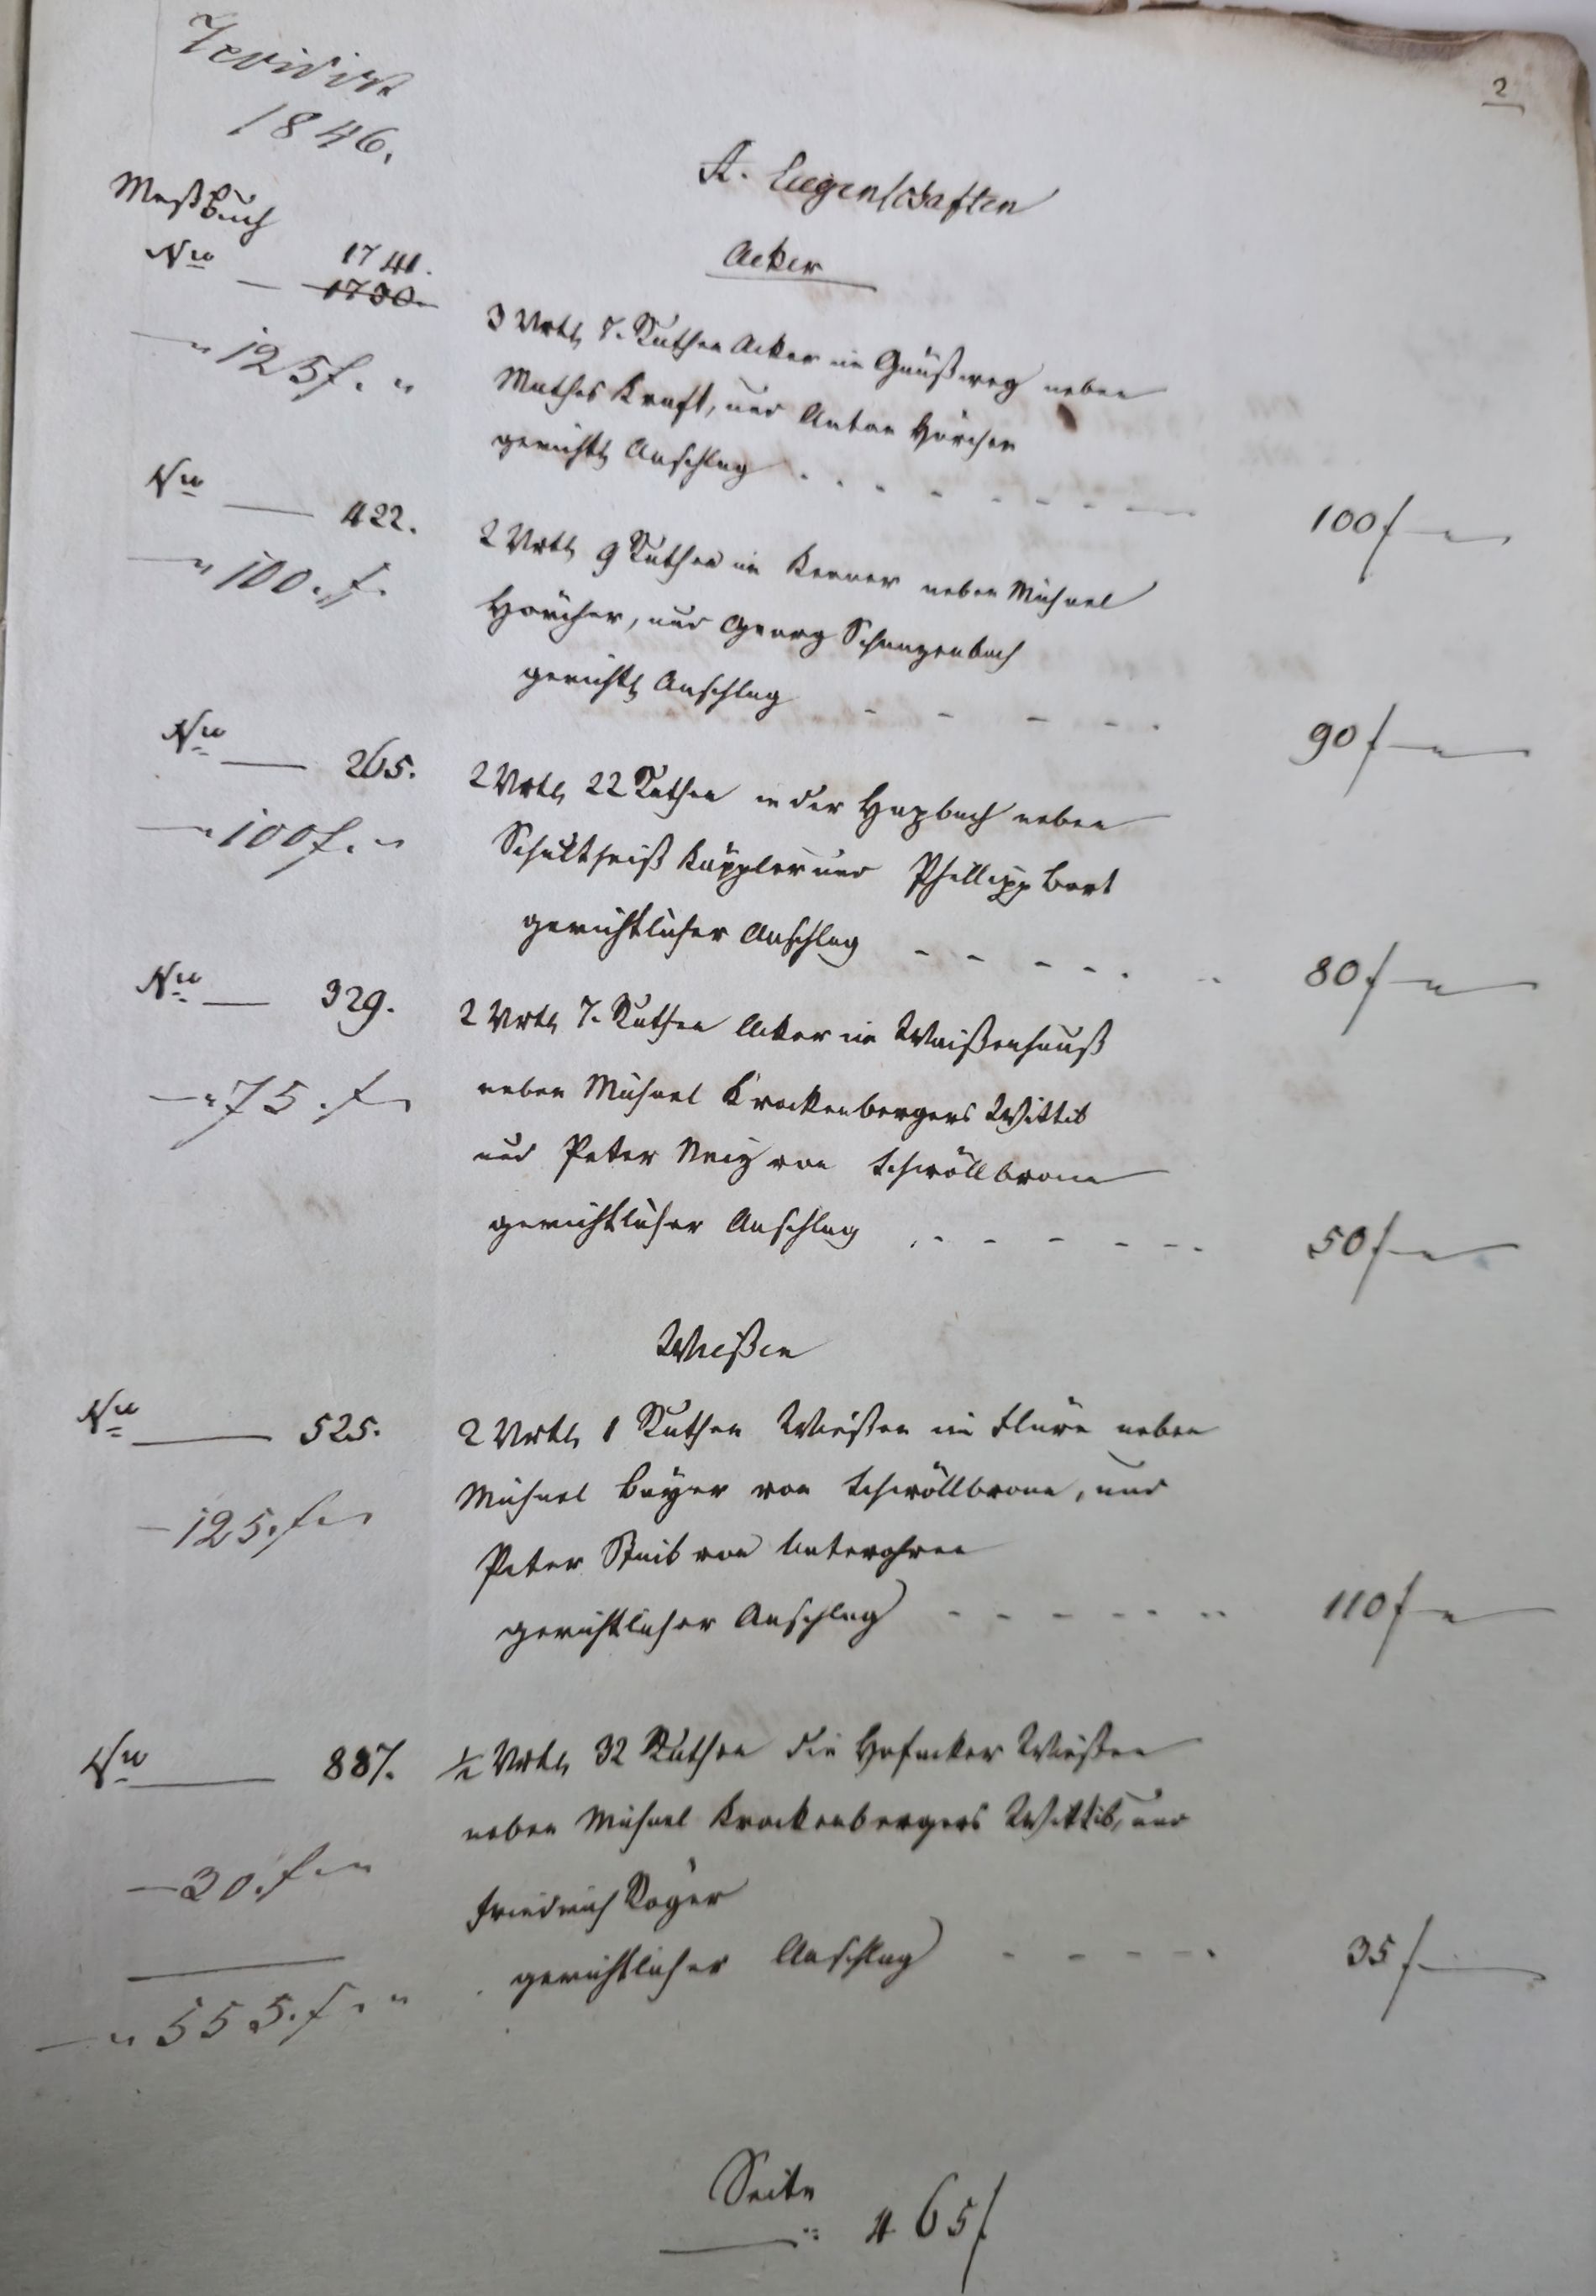 2
Revidirt
1846.
A. Liegenschaften
Acker
Meßbuch
No 1741.
1730.
3 Vrtl 7. Ruthen Acker im Gäußweg neben
" 125 f. "
Mathes Kraft, und Anton Hörcher
gerichtl Anschlag 100 f "
No 422.
2 Vrtl 9 Ruthen im Kenner neben Michael
" 100. f.
Hörcher, und Georg Schanzenbach
gerichtl Anschlag 90 f "
No 265.
2 Vrtl 22 Ruthen in der Hazbach neben
" 100 f. "
Schultheiß Käppler und Phillipp Bort
gerichtlicher Anschlag 80 f "
No 329.
2 Vrtl 7. Ruthen Acker im Waißenhauß
" 75. f "
neben Michael Krockenbergers Wittib
und Peter von Schwöllbronn
gerichtlicher Anschlag 50 f "
Wießen
No 525.
2 Vrtl 1 Ruthen Wießen im neben
125. f "
Michael Bayer von Schwöllbronn, und
Peter Staib von Unterohren
gerichtlicher Anschlag 110 f "
No 887.
1/2 Vrtl 32 Ruthen die Hofacker Wießen
neben Michael Krockenbergers Wittib, und
30. f "
Friedrich Roger
gerichtlicher Anschlag 35 f
" 555. f. "
Seite
" 465 f